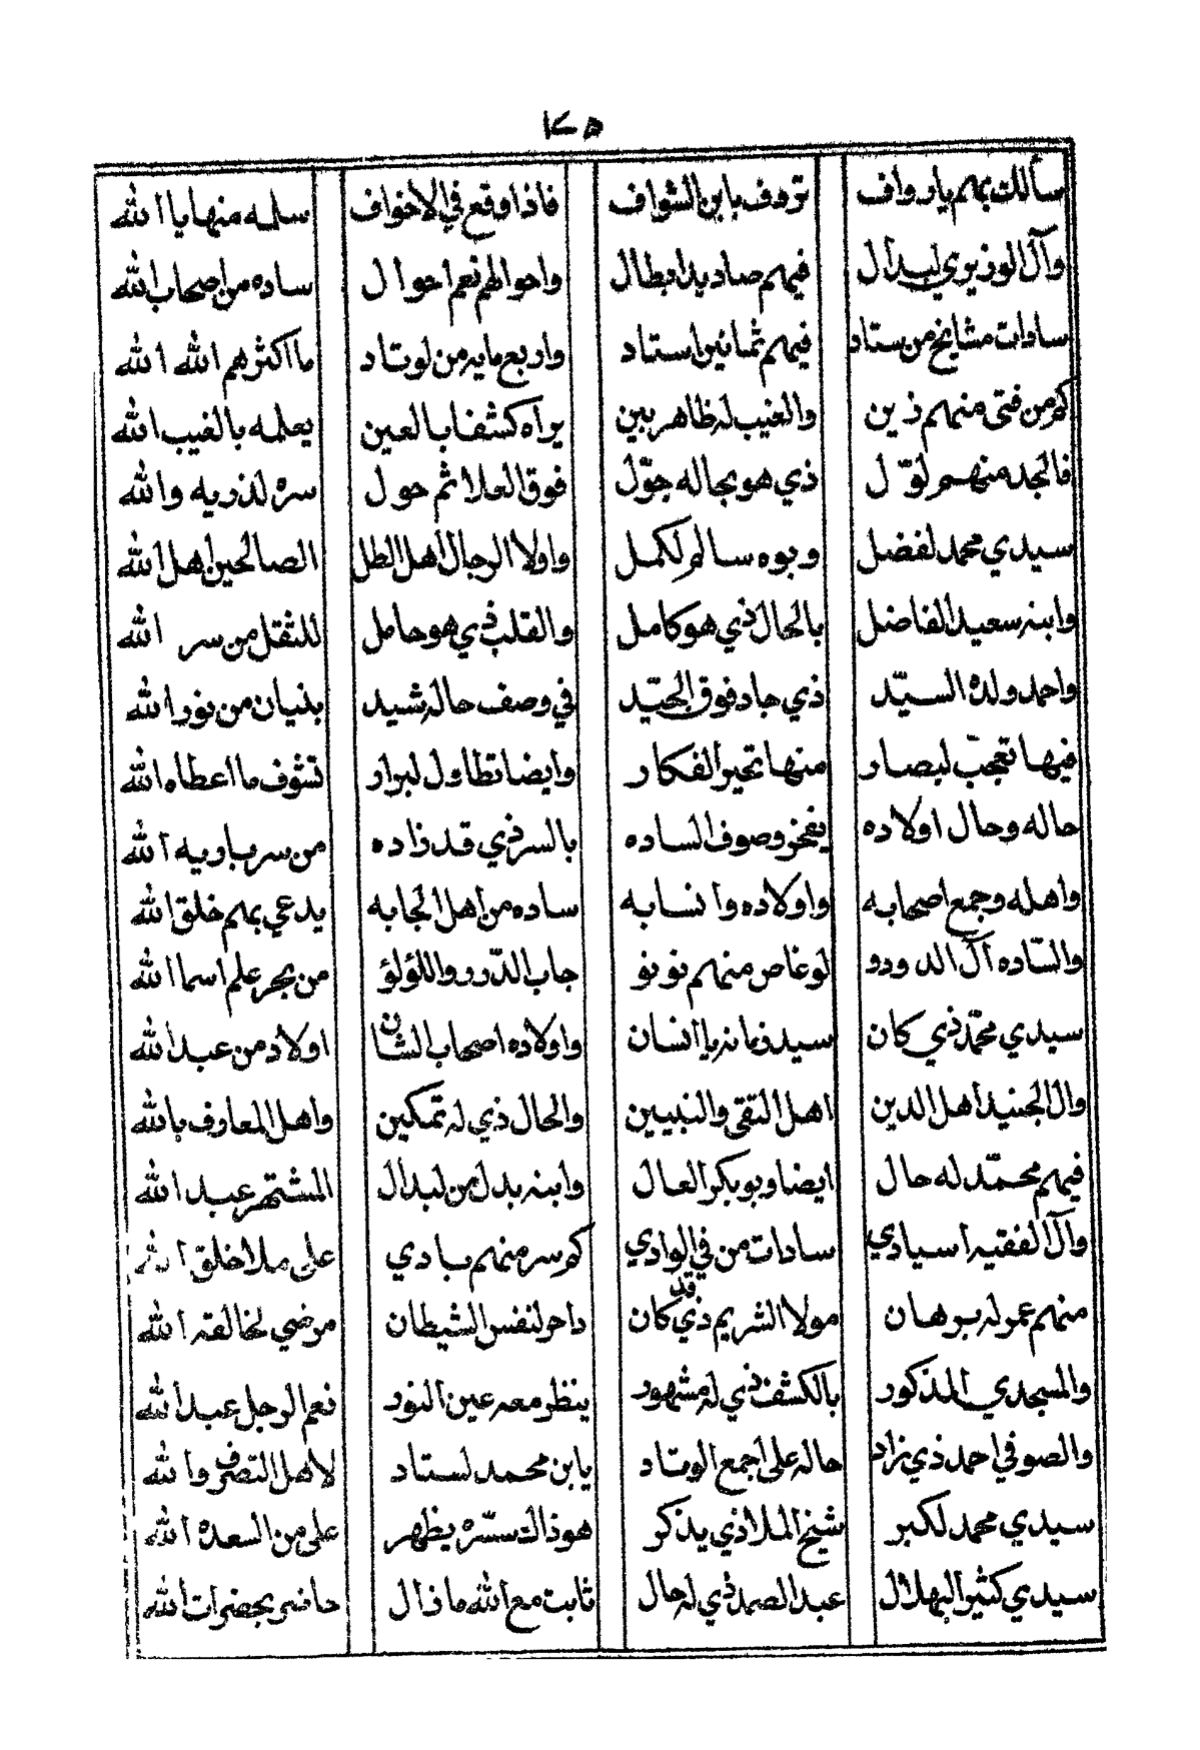 ١٢٥
سألك بهم يا رواف ترءف بابن الشواف فاذا وقع في الاخواف سلمه منها يا الله
وآل الوزيري لبدال فيهم صاديد ابطال واحوالهم نعم احوال ساده من اصحاب الله
سادات مشايخ من ستاد فيهم ثمانين استاد واربع مايه من لوتاد ما اكثرهم الله الله
كم من فتى منهم ذين والغيب له ظاهر بين يراه كشفا بالعين يعلمه بالغيب الله
فالجد منهم لوّل ذي هو بحاله جوّل فوق العلا ثم حول سره لذريه والله
سيدي محمد لفضل وبوه سالم لكمل واولا الرجال اهل الطل الصالحين اهل الله
وابنه سعيد الفاضل بالحال ذي هو كامل والقلب ذي هو حامل للثقل من سر الله
واحمد ولده السيّد ذي جاد فوق الجيّد في وصف حاله شيد بنيان من نور الله
فيها تعجب لبصار منها تحير الفكار وايضا تطاول لبرار تشوف ما اعطاه الله
حاله وحال اولاده يفخر وصوف الساده بالسر ذي قد زاده من سر باريه الله
واهله وجمع اصحابه واولاده وانسابه ساده من اهل الجابه يدعي بهم خلق الله
والسّاده آل الدودو لو غاص منهم نونو جاب الدّرر واللؤلؤ من بحر علم اسما الله
سيدي محمّد ذي كان سيد زمانه يا انسان واولاده اصحاب الشان اولاد من عبد الله
وال الجنيد اهل الدين اهل التقى والنبيين والحال ذي له تمكين واهل المعارف بالله
فيهم محمّد له حال ايضا وبوبكر العال وابنه بدل من لبدال المشتهر عبد الله
وآل الفقيه اسيادي سادات من في الوادي كم سر منهم بادي على ملا خلق الله
منهم عمر له برهان مولا الشريم ذي قد كان داحر لنفس الشيطان مرضي لخالقه الله
والمسجدي المذكور بالكشف ذي له مشهور ينظر معه عين النور نعم الرجل عبد الله
والصوفي احمد ذي زاد حاله على اجمع الوتاد يا بن محمد لستاد لاهل التصرف والله
سيدي محمد لكبر شيخ الملا ذي يذكر هو ذاك سرّه يظهر على من السعده الله
سيدي كثير البهلال عبد الصمد ذي له حال ثابت مع الله ما زال حاضر بحضرات الله